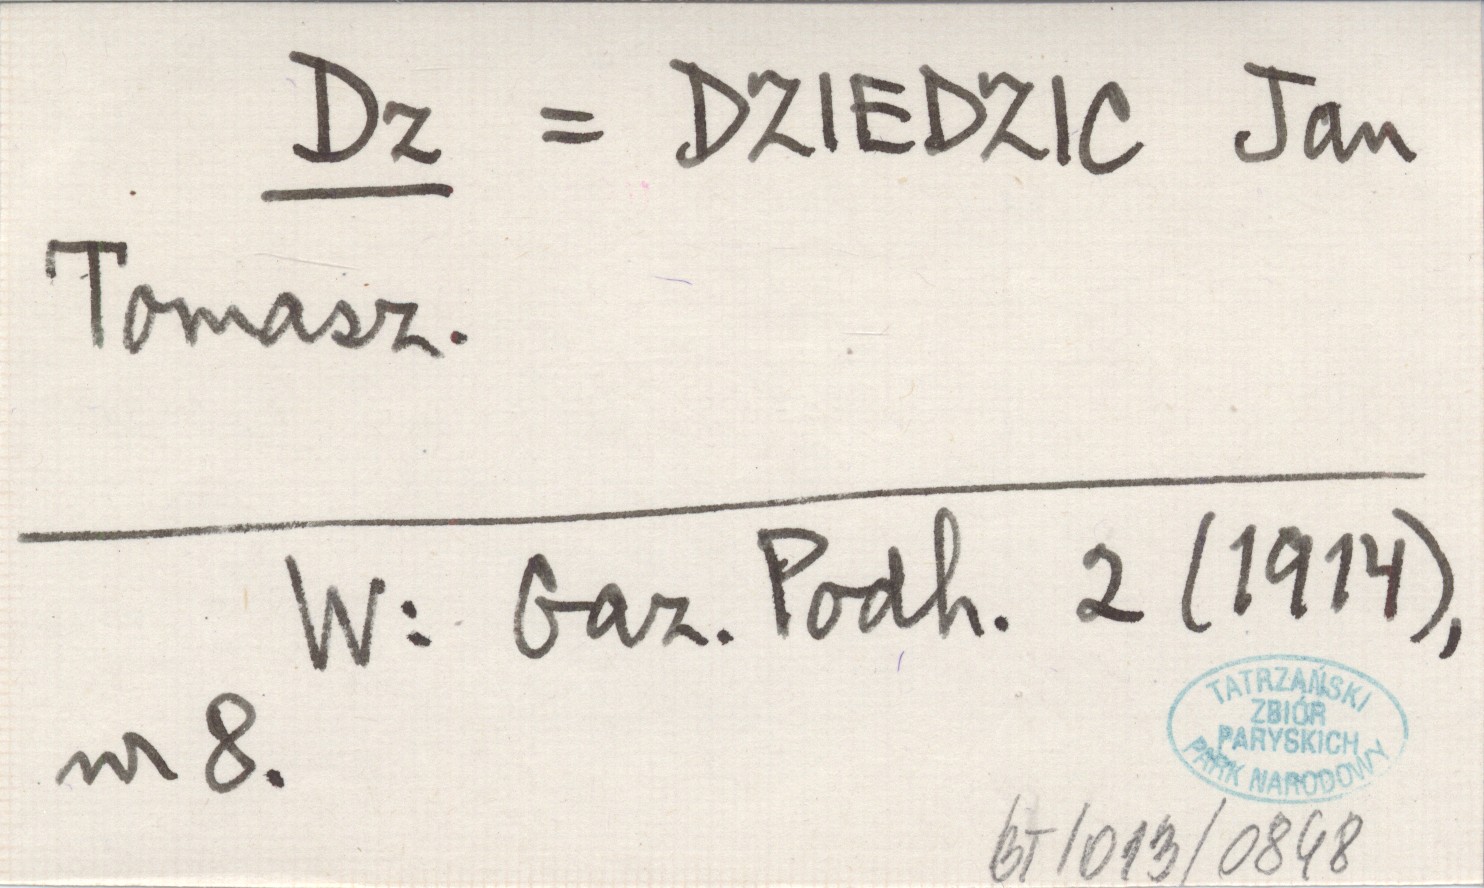 Dz = DZIEDZIC Jan
Tomasz.
W: Gaz. Podh. 2 (1914),
nr 8.
TATRZAŃSKI
ZBIÓR
PARYSKICH
PARK NARODOWY
BT/013/0848